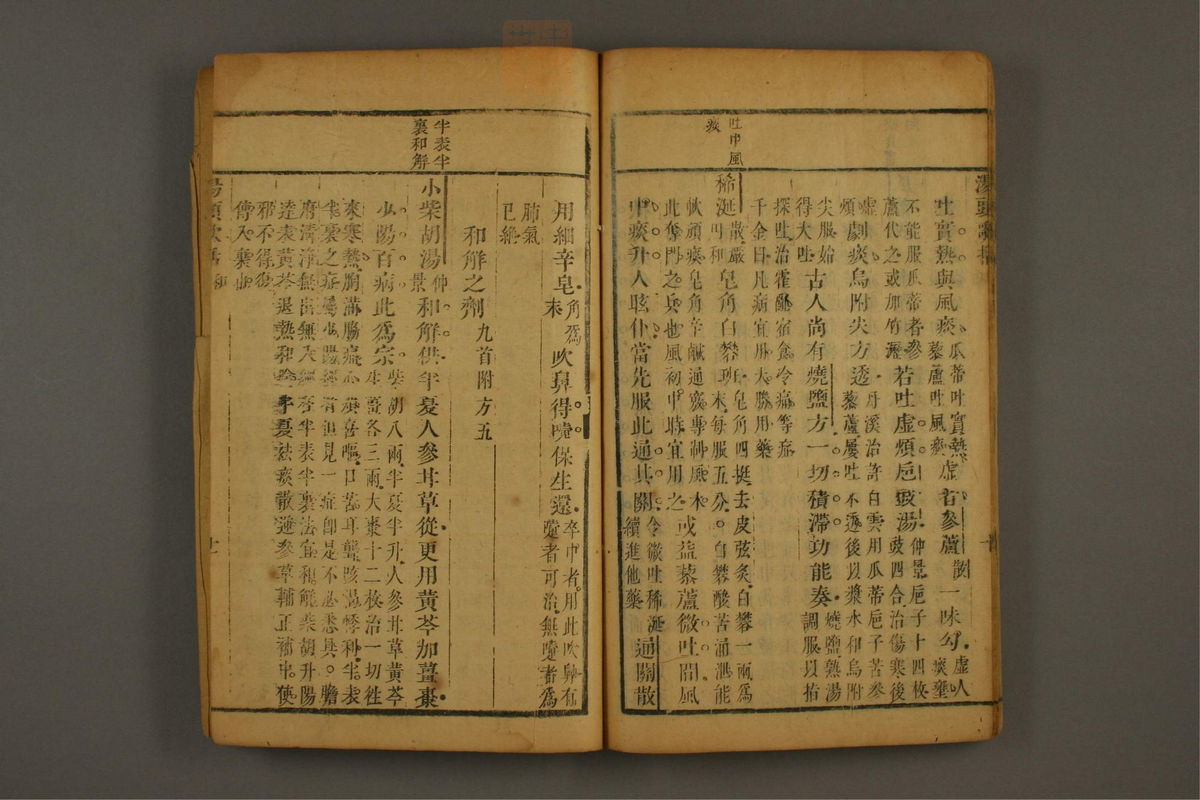 吐中風
痰
湯頭歌訣
吐實熱與風痰
瓜蒂吐實熱
藜蘆吐風痰
虛者參蘆散一味勾
虛人
痰壅
不能服瓜蒂者參
蘆代之或加竹瀝
若吐虛煩梔豉湯
仲景梔子十四枚
豉四合治傷寒後
虛
煩
劇痰烏附尖方透
丹溪治許白雲用瓜蒂梔子苦參
藜蘆屢吐不透後以漿水和烏附
尖服始
得大吐
古人尚有燒鹽方一切積滯功能奏
燒鹽熟湯
調服以指
探吐治霍亂宿食冷痛等症
千金曰凡病宜用大勝用藥
稀涎
散嚴
用和
皂角白礬班
皂角四挺去皮弦炙白礬一兩為
末每服五分。白礬酸苦涌泄能
軟頑痰皂角辛鹹通竅專制風木
此奪門之兵也風初中時宜用之
或益藜蘆微吐間風
中痰升人眩仆當先服此通其關
令微吐稀涎
續進他藥
通關散
用細辛皂
角為
末
吹鼻得嚏保生還
卒中者。用此吹鼻有
嚏者可治。無嚏者為
肺氣
已絕
和解之劑
九首附方五
半表半
裏和解
小柴胡湯
仲
景
和解供半夏人參甘草從更用黃芩加薑棗
少陽百病此為宗
柴胡八兩半夏半升人參甘草黃芩
生薑各三兩大棗十二枚治一切往
來寒熱胸滿脇痛心煩喜嘔口苦耳聾咳渴悸利半表
半裏之症屬少陽經者但見一症即是不必悉具。膽
府清淨無出無入經在半表半裏法宜和解柴胡升陽
達表黃芩退熱和陰半夏祛痰散逆參草輔正補中。使
邪不得復
傳入裏也